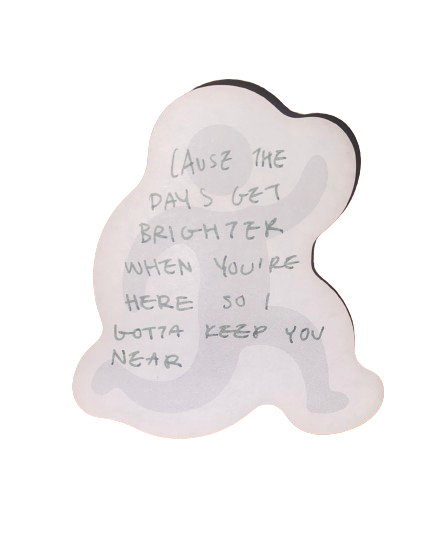 CAUSE THE
DAYS GET
BRIGHTER
WHEN YOU'RE
HERE SO I
GOTTA KEEP YOU
NEAR